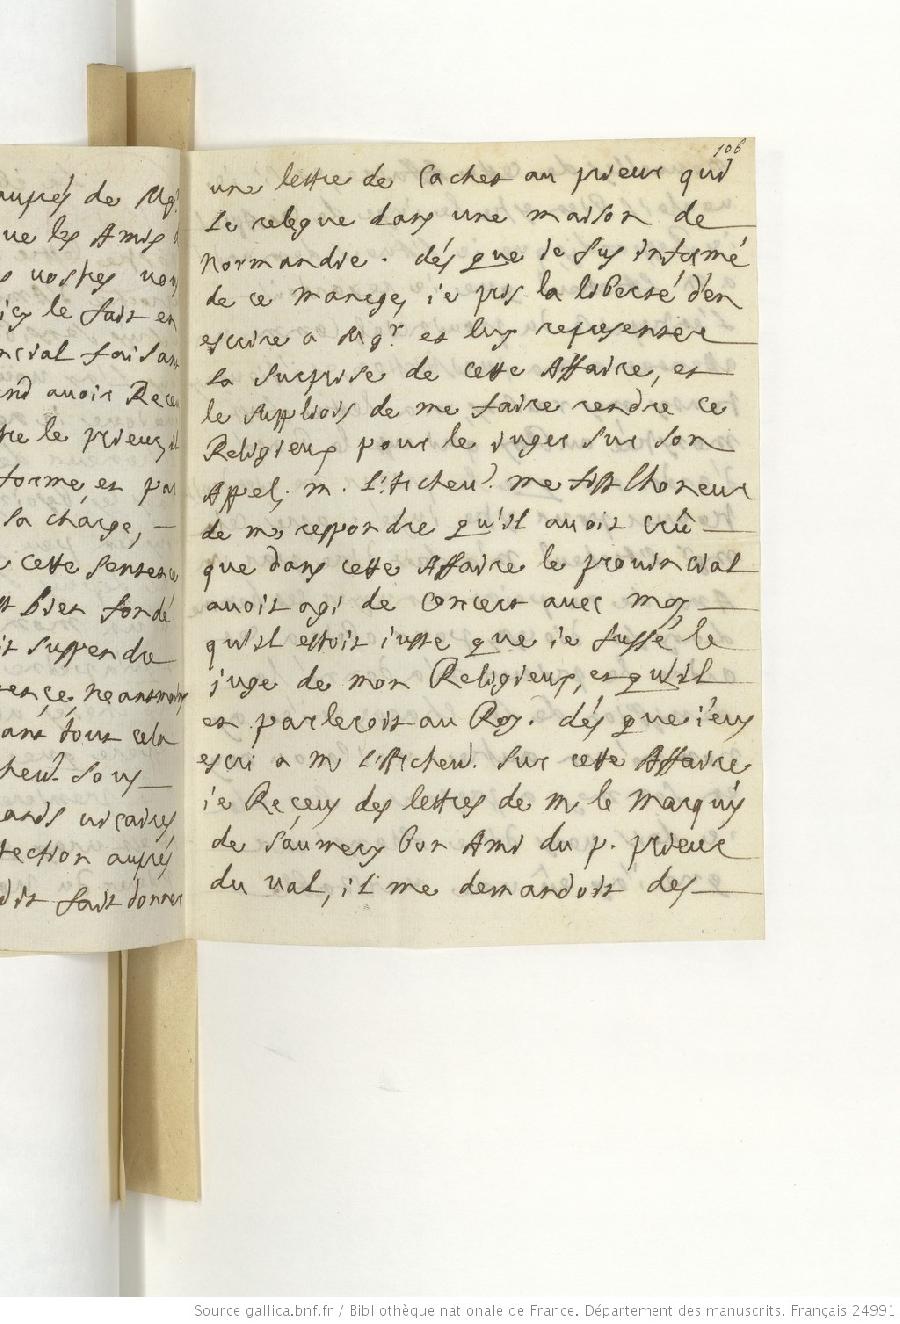 aupres de Mgr
que les Amis
vostres
le fait en
cial faisan
avoir Rece
le prieur, il
forme, et par
sa charge,
cette sentence
bien fondé
suspendre
neansmoins
tout cela
cheu.? sous
vicaires
tection aupres
fait donner
106
une lettre de Cachet au prieur qui
Le relegue dans une maison de
normandie. dés que ie fus informé
de ce manege, ie pris la liberté d'en
escrire a Mgr et luy representer
la surprise de cette Affaire, et
le suppliois de me faire rendre ce
Religieux pour le iuger sur son
Appel; m. L'Archeu? me fist Lhoneur
de my respondre qu'il auoit crû
que dans cette Affaire le prouincial
auoit agi de concert auec moy
qu'il estoit iuste que ie fusse le
juge de mon Religieux, et qu'il
en parleroit au Roy. dés que i'eus
escri a Mr L'Archeu? sur cette Affaire
ie Reçeus des lettres de Mr le marquis
de saumery bon Ami du p. prieur
du val, il me demandoit des
Source gallica.bnf.fr / Bibliothèque nationale de France. Département des manuscrits. Français 24991